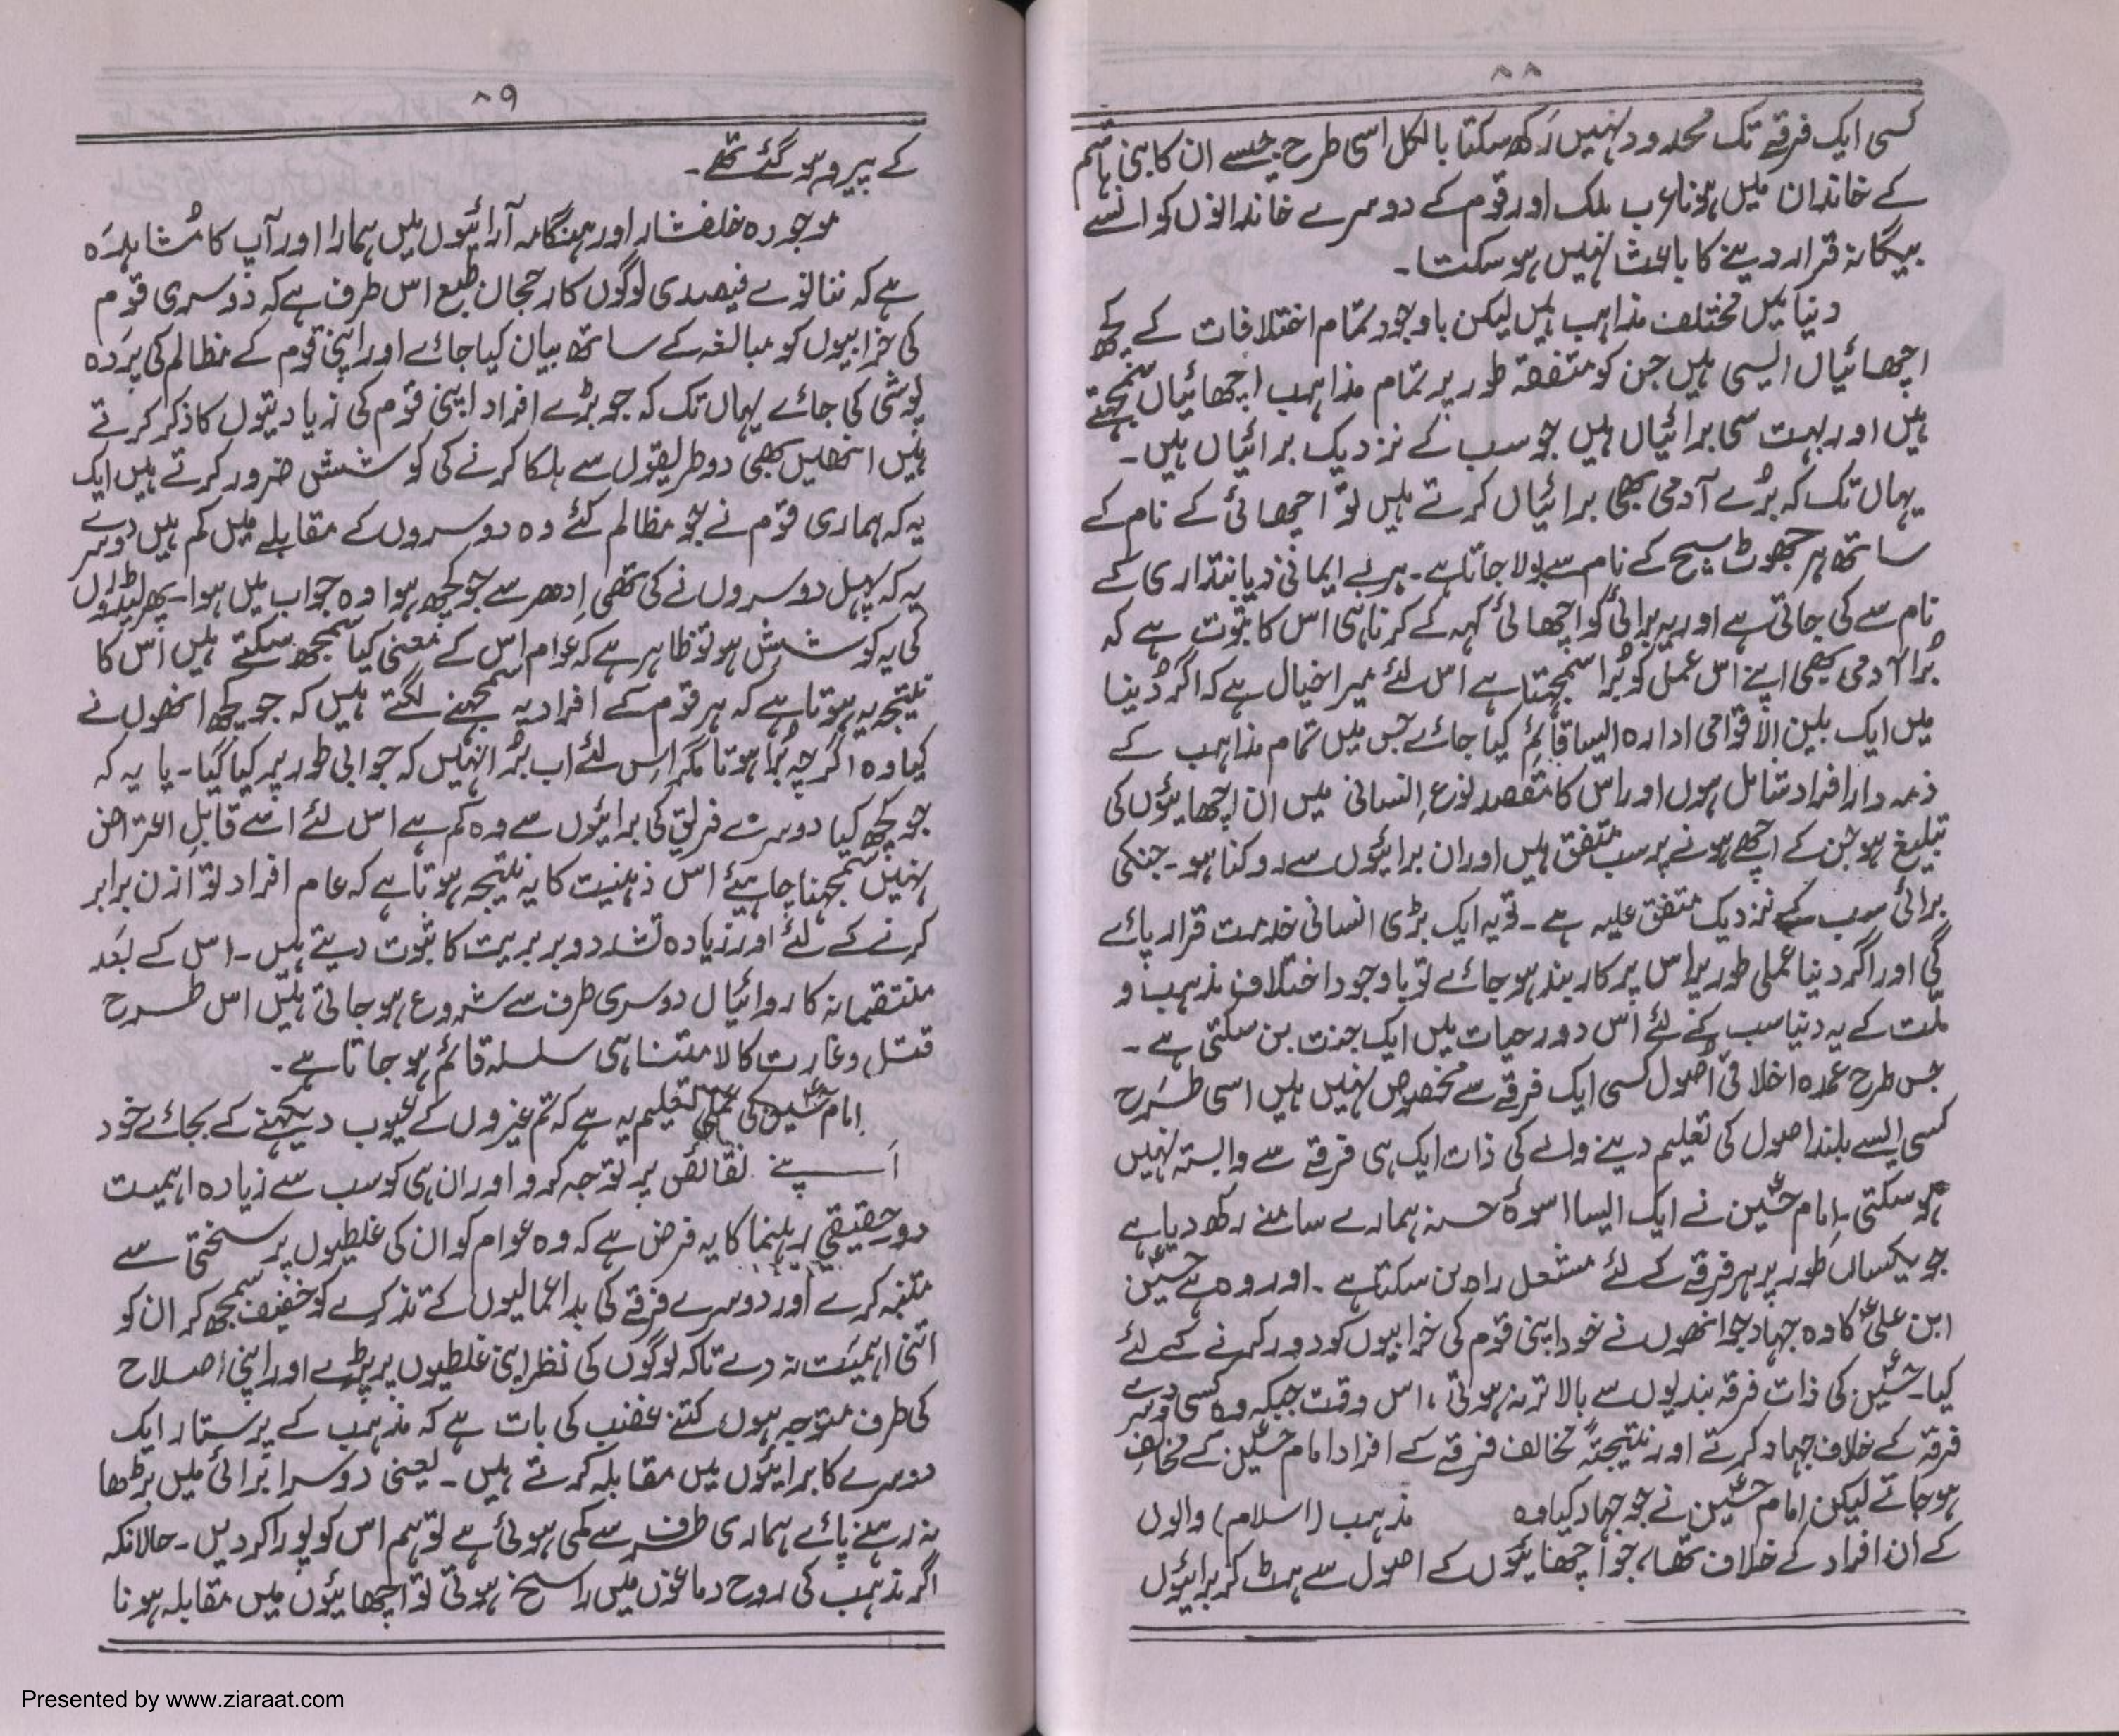 ۸۸
کسی ایک فرقے تک محدود نہیں رکھ سکتا بالکل اسی طرح جیسے ان کا بنی ہاشم
کے خاندان میں ہونا عرب ملک اور قوم کے دوسرے خاندانوں کو انسے
بیگانہ قرار دینے کا باعث نہیں ہو سکتا۔
دنیا میں مختلف مذاہب ہیں لیکن باوجود تمام اختلافات کے کچھ
اچھائیاں ایسی ہیں جن کو متفقہ طور پر تمام مذاہب اچھائیاں سمجھتے
ہیں اور بہت سی برائیاں ہیں جو سب کے نزدیک برائیاں ہیں۔
یہاں تک کہ بُرے آدمی بھی برائیاں کرتے ہیں تو اچھائی کے نام کے
ساتھ ہر جھوٹ سچ کے نام سے بولا جاتا ہے۔ ہر بے ایمانی دیانتداری کے
نام سے کی جاتی ہے اور یہ برائی کو اچھائی کہہ کے کرنا ہی اس کا ثبوت ہے کہ
بُرا آدمی بھی اپنے اس عمل کو بُرا سمجھتا ہے اس لئے میرا خیال ہے کہ اگر دُنیا
میں ایک بین الاقوامی ادارہ ایسا قائم کیا جائے جس میں تمام مذاہب کے
ذمہ دار افراد شامل ہوں اور اس کا مقصد نوعِ انسانی میں ان اچھائیوں کی
تبلیغ ہو جن کے اچھے ہونے پر سب متفق ہیں اور ان برائیوں سے روکنا ہو۔ جنکی
برائی سب کے نزدیک متفق علیہ ہے۔ تو یہ ایک بڑی انسانی خدمت قرار پائے
گی اور اگر دنیا عملی طور پر اس پر کاربند ہو جائے تو باوجود اختلاف مذہب و
ملت کے یہ دنیا سب کے لئے اس دور حیات میں ایک جنت بن سکتی ہے۔
جس طرح عمدہ اخلاقی اُصول کسی ایک فرقے سے مخصوص نہیں ہیں اسی طرح
کسی ایسے بلند اصول کی تعلیم دینے والے کی ذات ایک ہی فرقے سے وابستہ نہیں
ہو سکتی۔ امام حسینؑ نے ایک ایسا اسوۂ حسنہ ہمارے سامنے رکھ دیا ہے
جو یکساں طور پر ہر فرقے کے لئے مشعل راہ بن سکتا ہے۔ اور وہ ہے حسینؑ
ابن علیؑ کا وہ جہاد جو انھوں نے خود اپنی قوم کی خرابیوں کو دور کرنے کے لئے
کیا۔ حسینؑ کی ذات فرقہ بندیوں سے بالاتر نہ ہوتی، اس وقت جبکہ وہ کسی دوسرے
فرقہ کے خلاف جہاد کرتے اور نتیجتہً مخالف فرقے کے افراد امام حسینؑ کے مخالف
ہو جاتے لیکن امام حسینؑ نے جو جہاد کیا وہ مذہب (اسلام) والوں
کے ان افراد کے خلاف تھا، جو اچھائیوں کے اصول سے ہٹ کر برائیوں
۸۹
کے پیرو ہو گئے تھے۔
موجودہ خلفشار اور ہنگامہ آرائیوں میں ہمارا اور آپ کا مُشاہدہ
ہے کہ ننانوے فیصدی لوگوں کا رجحان طبع اس طرف ہے کہ دُوسری قوم
کی خرابیوں کو مبالغہ کے ساتھ بیان کیا جائے اور اپنی قوم کے مظالم کی پردہ
پوشی کی جائے یہاں تک کہ جو بڑے افراد اپنی قوم کی زیادتیوں کا ذکر کرتے
ہیں انھیں بھی دو طریقوں سے ہلکا کرنے کی کوشش ضرور کرتے ہیں ایک
یہ کہ ہماری قوم نے جو مظالم کئے وہ دوسروں کے مقابلے میں کم ہیں دوسرے
یہ کہ پہل دوسروں نے کی تھی اِدھر سے جو کچھ ہوا وہ جواب میں ہوا۔ پھر لیڈروں
کی یہ کوشش ہو تو ظاہر ہے کہ عوام اس کے معنی کیا سمجھ سکتے ہیں اس کا
نتیجہ یہ ہوتا ہے کہ ہر قوم کے افراد یہ سمجھنے لگتے ہیں کہ جو کچھ انھوں نے
کیا وہ اگرچہ بُرا ہوتا مگر اس لئے اب بُرا نہیں کہ جوابی طور پر کیا گیا۔ یا یہ کہ
جو کچھ کیا دوسرے فریق کی برائیوں سے وہ کم ہے اس لئے اسے قابل اعتراض
نہیں سمجھنا چاہیئے اس ذہنیت کا یہ نتیجہ ہوتا ہے کہ عام افراد توازن برابر
کرنے کے لئے اور زیادہ تشدد و بربریت کا ثبوت دیتے ہیں۔ اس کے بعد
منتقمانہ کاروائیاں دوسری طرف سے شروع ہو جاتی ہیں اس طرح
قتل و غارت کا لامتناہی سلسلہ قائم ہو جاتا ہے۔
امام حسینؑ کی عملی تعلیم یہ ہے کہ تم غیروں کے عیوب دیکھنے کے بجائے خود
اپنے نقائص پر توجہ کرو اور ان ہی کو سب سے زیادہ اہمیت
دو حقیقی رہنما کا یہ فرض ہے کہ وہ عوام کو ان کی غلطیوں پر سختی سے
متنبہ کرے اور دوسرے فرقے کی بداعمالیوں کے تذکرے کو خفیف سمجھ کر ان کو
اتنی اہمیت نہ دے تاکہ لوگوں کی نظر اپنی غلطیوں پر پڑے اور اپنی اصلاح
کی طرف متوجہ ہوں کتنے غضب کی بات ہے کہ مذہب کے پرستار ایک
دوسرے کا برائیوں میں مقابلہ کرتے ہیں۔ یعنی دوسرا بُرائی میں بڑھا
نہ رہنے پائے ہماری طرف سے کمی ہوئی ہے تو ہم اس کو پورا کر دیں۔ حالانکہ
اگر مذہب کی روح دماغوں میں راسخ ہوتی تو اچھائیوں میں مقابلہ ہونا
Presented by www.ziaraat.com